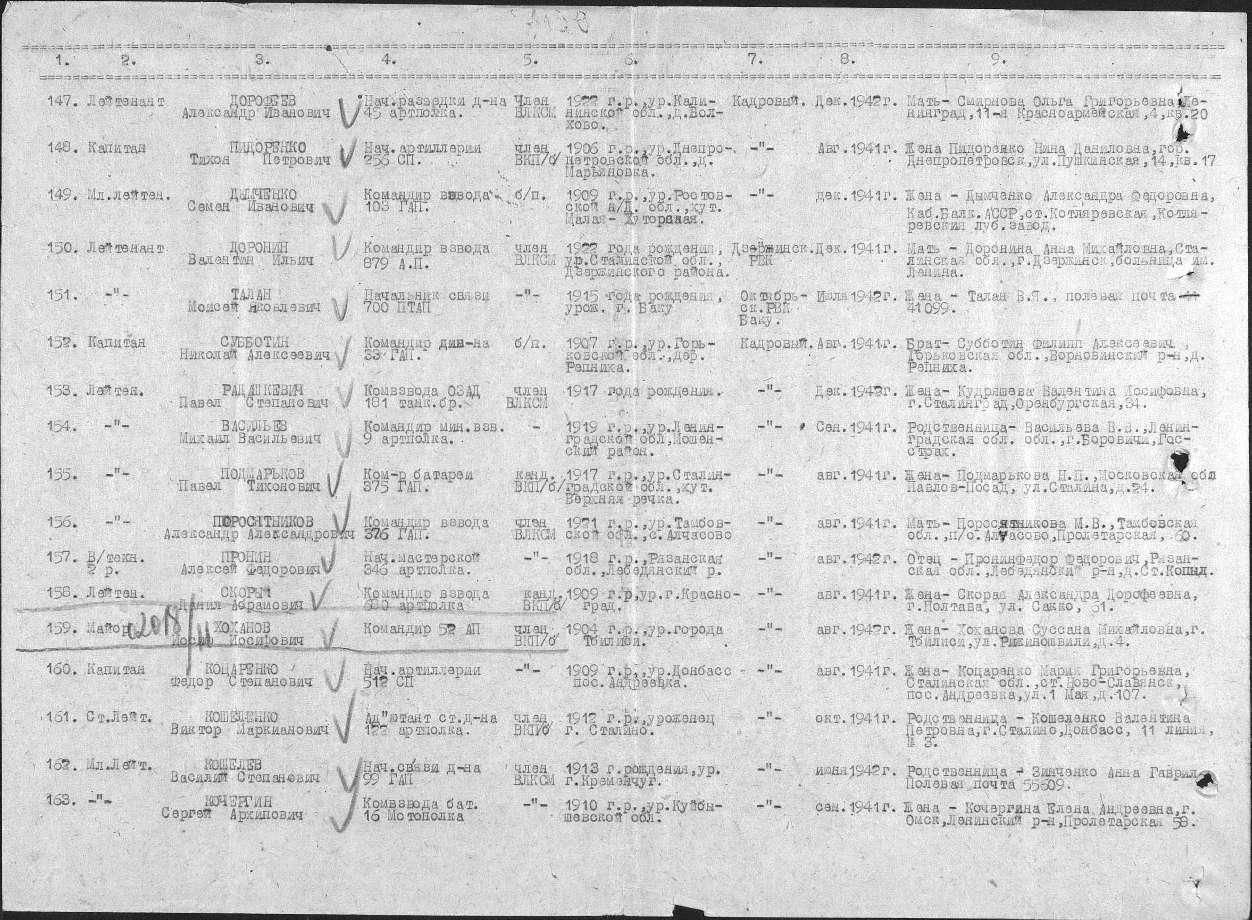 1. 2. 3. 4. 5. 6. 7. 8. 9.
147. Лейтенант ДОРОФЕЕВ Нач.разведки д-на Член 1922 г.р.,ур.Кали- Кадровый. Дек.1942г. Мать- Смирнова Ольга Григорьевна,Ле-
Александр Иванович 45 артполка. ВЛКСМ нинской обл.,д.Вол- нинград,11-я Красноармейская,4,кв.20
хово.
148. Капитан ПИДОРЕНКО Нач.артиллерии член 1906 г.р.,ур.Днепро- -"- Авг.1941г. Жена Пидоренко Нина Даниловна,гор.
Тихон Петрович 256 СП. ВКП/б/ петровской обл.,д. Днепропетровск,ул.Пушкинская,14,кв.17
Марьяновка.
149. Мл.лейтен. ДЫМЧЕНКО Командир взвода б/п. 1909 г.р.,ур.Ростов- -"- дек.1941г. Жена - Дымченко Александра Федоровна,
Семен Иванович 103 ГАП. ской н/Д. обл.,хут. Каб.Балк.АССР,ст.Котляревская,Котля-
Малая- Хуторная. ревский луб.завод.
150. Лейтенант ДОРОНИН Командир взвода член 1922 года рождения, Дзержинск. Дек.1941г. Мать - Доронина Анна Михайловна,Ста-
Валентин Ильич 879 А.П. ВЛКСМ ур.Сталинской обл., РВК линская обл.,г.Дзержинск,больница им.
Дзержинского района. Ленина.
151. -"- ТАЛАН Начальник связи -"- 1915 года рождения, Октябрь- Июля 1942г. Жена - Талан В.Я., полевая почта
Моисей Яковлевич 700 ПТАП урож. г. Баку ск.РВК 41099.
Баку.
152. Капитан СУББОТИН Командир див-на б/п. 1907 г.р.,ур.Горь- Кадровый. Авг.1941г. Брат- Субботин Филипп Алексеевич,
Николай Алексеевич 33 ГАП. ковской обл.,дер. Горьковская обл.,Ворновинский р-н,д.
Репниха. Репниха.
153. Лейтен. РАДАШКЕВИЧ Комвзвода ОЗАД член 1917 года рождения. -"- Дек.1942г. Жена- Кудряшева Валентина Иосифовна,
Павел Степанович 181 танк.бр. ВЛКСМ г.Сталинград,Оренбургская,34.
154. -"- ВАСИЛЬЕВ Командир мин.взв. - 1919 г.р.,ур.Ленин- -"- Сен.1941г. Родственница- Васильева В.В.,Ленин-
Михаил Васильевич 9 артполка. градской обл,Мошен- градская обл. обл.,г.Боровичи,Гос-
ский район. страх.
155. -"- ПОДМАРЬКОВ Ком-р батареи канд. 1917 г.р.,ур.Сталин- -"- авг.1941г. Жена- Подмарькова Н.П.,Московская обл
Павел Тихонович 375 ГАП. ВКП/б/ градской обл.,хут. Павлов-Посад, ул.Сталина,д.24.
Верхняя речка.
156. -"- ПОРОСЯТНИКОВ Командир взвода член 1921 г.р.,ур.Тамбов- -"- авг.1941г. Мать- Поросятникова М.В.,Тамбовская
Александр Александрович 376 ГАП. ВЛКСМ ской обл.,с.Алчасово обл.,п/о.Алчасово,Пролетарская, 60.
157. В/техн. ПРОНИН Нач.мастерской -"- 1918 г.р.,Рязанская -"- авг.1942г. Отец - Пронинфедор Федорович,Рязан-
2 р. Алексей Федорович 346 артполка. обл.,Лебедянский р. ская обл.,Лебедянский р-н,д.Ст.Копыл.
158. Лейтен. СКОРЫЙ Командир взвода канд. 1909 г.р.,ур.г.Красно- -"- авг.1942г. Жена- Скорая Александра Дорофеевна,
Данил Абрамович артполка ВКП/б/ град. г.Полтава, ул. Сакко, 31.
159. Майор ХОХАНОВ Командир 52 АП член 1904 г.р.,ур.города -"- авг.1942г. Жена- Хоханова Суссана Михайловна,г.
Иосиф Иосифович ВКП/б Тбилиси. Тбилиси,ул.Рижиношвили,д.4.
160. Капитан КОЦАРЕНКО Нач.артиллерии -"- 1909 г.р.,ур.Донбасс -"- авг.1941г. Жена- Коцаренко Мария Григорьевна,
Федор Степанович 512 СП пос.Андреевка. Сталинская обл.,ст.Ново-Славянск,
пос.Андреевка,ул.1 Мая,д.107.
161. Ст.Лейт. КОШЕЛЕНКО Ад"ютант ст.д-на член 1912 г.р.,уроженец -"- окт.1941г. Родственница - Кошеленко Валентина
Виктор Маркианович 122 артполка. ВКП/б г. Сталино. Петровна,г.Сталино,Донбасс, 11 линия,
№ 3.
162. Мл.Лейт. КОШЕЛЕВ Нач.связи д-на член 1913 г.рождения,ур. -"- июня 1942г. Родственница - Зинченко Анна Гаврил.
Василий Степанович 99 ГАП ВЛКСМ г.Кременчуг. Полевая почта 55609.
163. -"- КОЧЕРГИН Комвзвода бат. -"- 1910 г.р.,ур.Куйбы- -"- сен.1941г. Жена - Кочергина Елена Андреевна,г.
Сергей Архипович 16 Мотополка шевской обл. Омск,Ленинский р-н,Пролетарская 58.